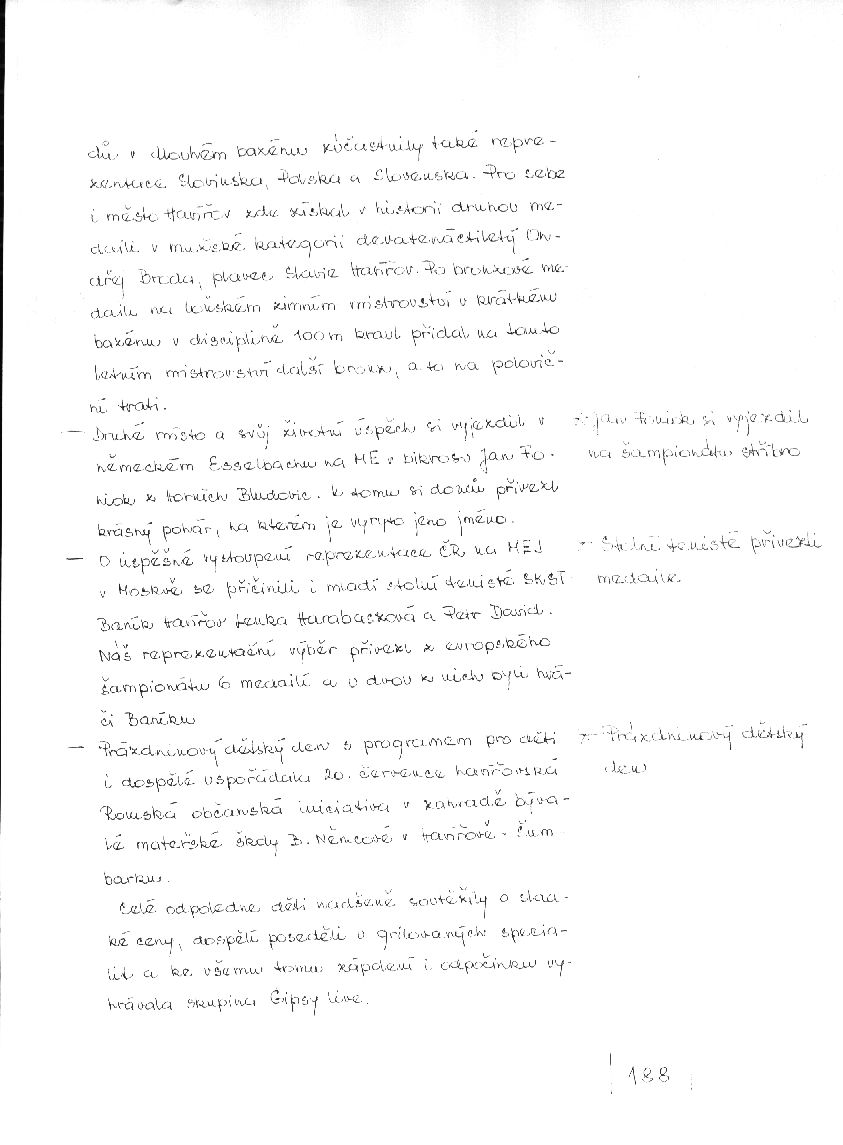 dů v dlouhém bazénu zúčastnily také repre-
zentace Slovinska, Polska a Slovenska. Pro sebe
i město Havířov zde získal v historii druhou me-
daili v mužské kategorii devatenáctiletý On-
dřej Broda, plavec Slavie Havířov. Po bronzové me-
daili na loňském zimním mistrovství v krátkém
bazénu v disciplíně 100 m kraul přidal na tomto
letním mistrovství další bronz, a to na polovič-
ní trati.
— Druhé místo a svůj životní úspěch si vyjezdil v
* Jan Foniok si vyjezdil
německém Esselbachu na ME v bikrosu Jan Fo-
na šampionátu stříbro
niok z Horních Bludovic. K tomu si domů přivezl
krásný pohár, na kterém je vyryto jeho jméno.
— O úspěšné vystoupení reprezentace ČR na MEJ
* Stolní tenisté přivezli
v Moskvě se přičinili i mladí stolní tenisté SKST
medaile
Baník Havířov Lenka Harabaszová a Petr David.
Náš reprezentační výběr přivezl z evropského
šampionátu 6 medailí a u dvou z nich byli hrá-
či Baníku
— Prázdninový dětský den s programem pro děti
* Prázdninový dětský
i dospělé uspořádala 20. července havířovská
den
Romská občanská iniciativa v zahradě býva-
lé mateřské školy B. Němcové v Havířově - Šum
barku.
Celé odpoledne děti nadšeně soutěžily o slad-
ké ceny, dospělí poseděli u grilovaných specia-
lit a ke všemu tomu zápolení i odpočinku vy-
hrávala skupina Gipsy live.
188